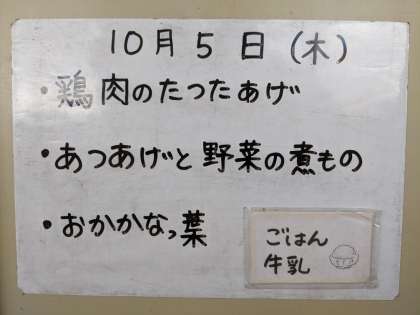 10月5日(木)
・鶏肉のたつたあげ
・あつあげと野菜の煮もの
・おかかなっ葉
ごはん
牛乳